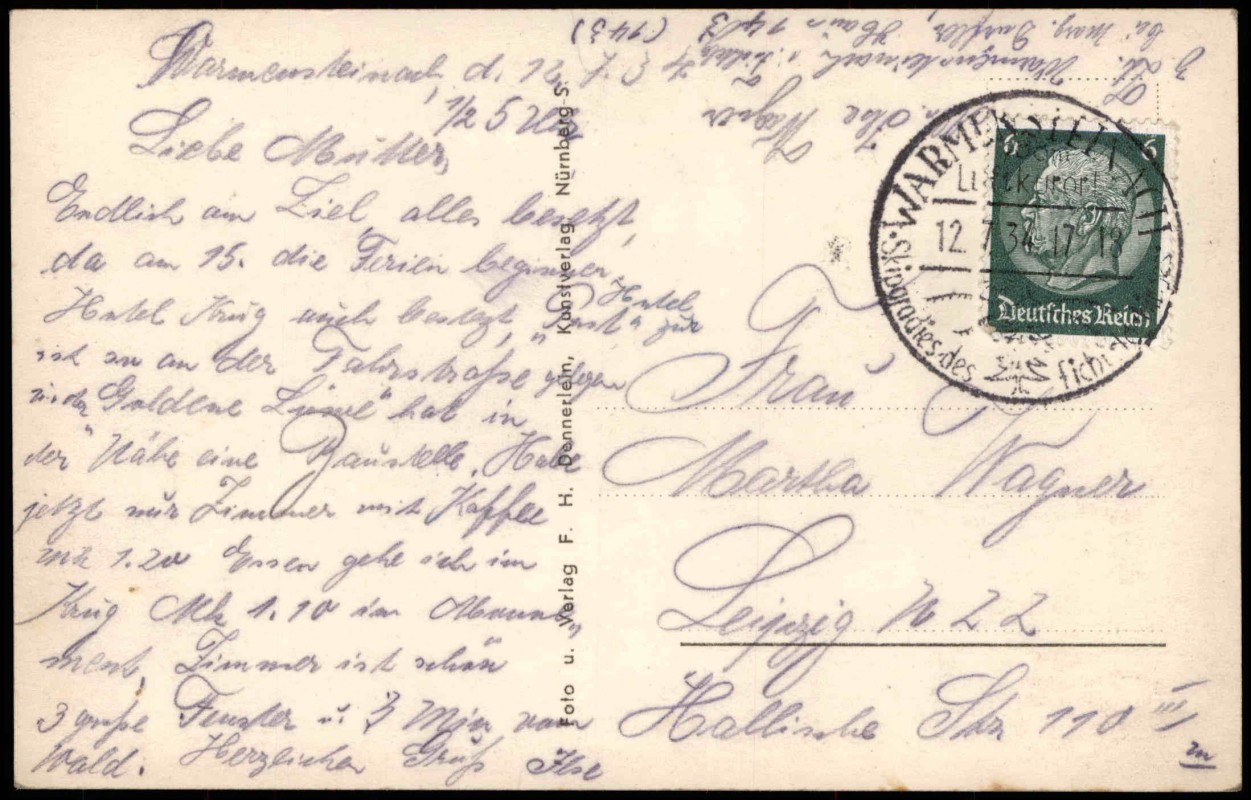 Warmensteinach, d. 12. 7. 3
1/2 5 Uhr
Liebe Mutter,
Endlich am Ziel, alles besetzt,
da am 15. die Ferien beginnen,
Hotel Krug auch besetzt, Hotel „Post“ zur
ist so an der Fahrstraße gelegen
in der „Goldene Linse“ hat in
der Nähe eine Baustelle. Habe
jetzt nur Zimmer mit Kaffee
mk 1.20 Essen gehe ich im
Krug Mk 1.10 im Abonne„
ment, Zimmer ist schön
3 große Fenster u. 3 Min vom
Wald. Herzlichen Gruß Ilse
Foto u. Verlag F. H. Dennerlein, Kunstverlag, Nürnberg-S.
Ilse Wagner
z. Zt. Warmensteinach
bei Marg.
Haus 143
(143)
WARMENSTEINACH
Luftkurort
12.7.34.17-18
Skiparadies des Fichtel
6 6
Deutsches Reich
Frau
Martha Wagner
Leipzig N 22
Hallische Str 110 III